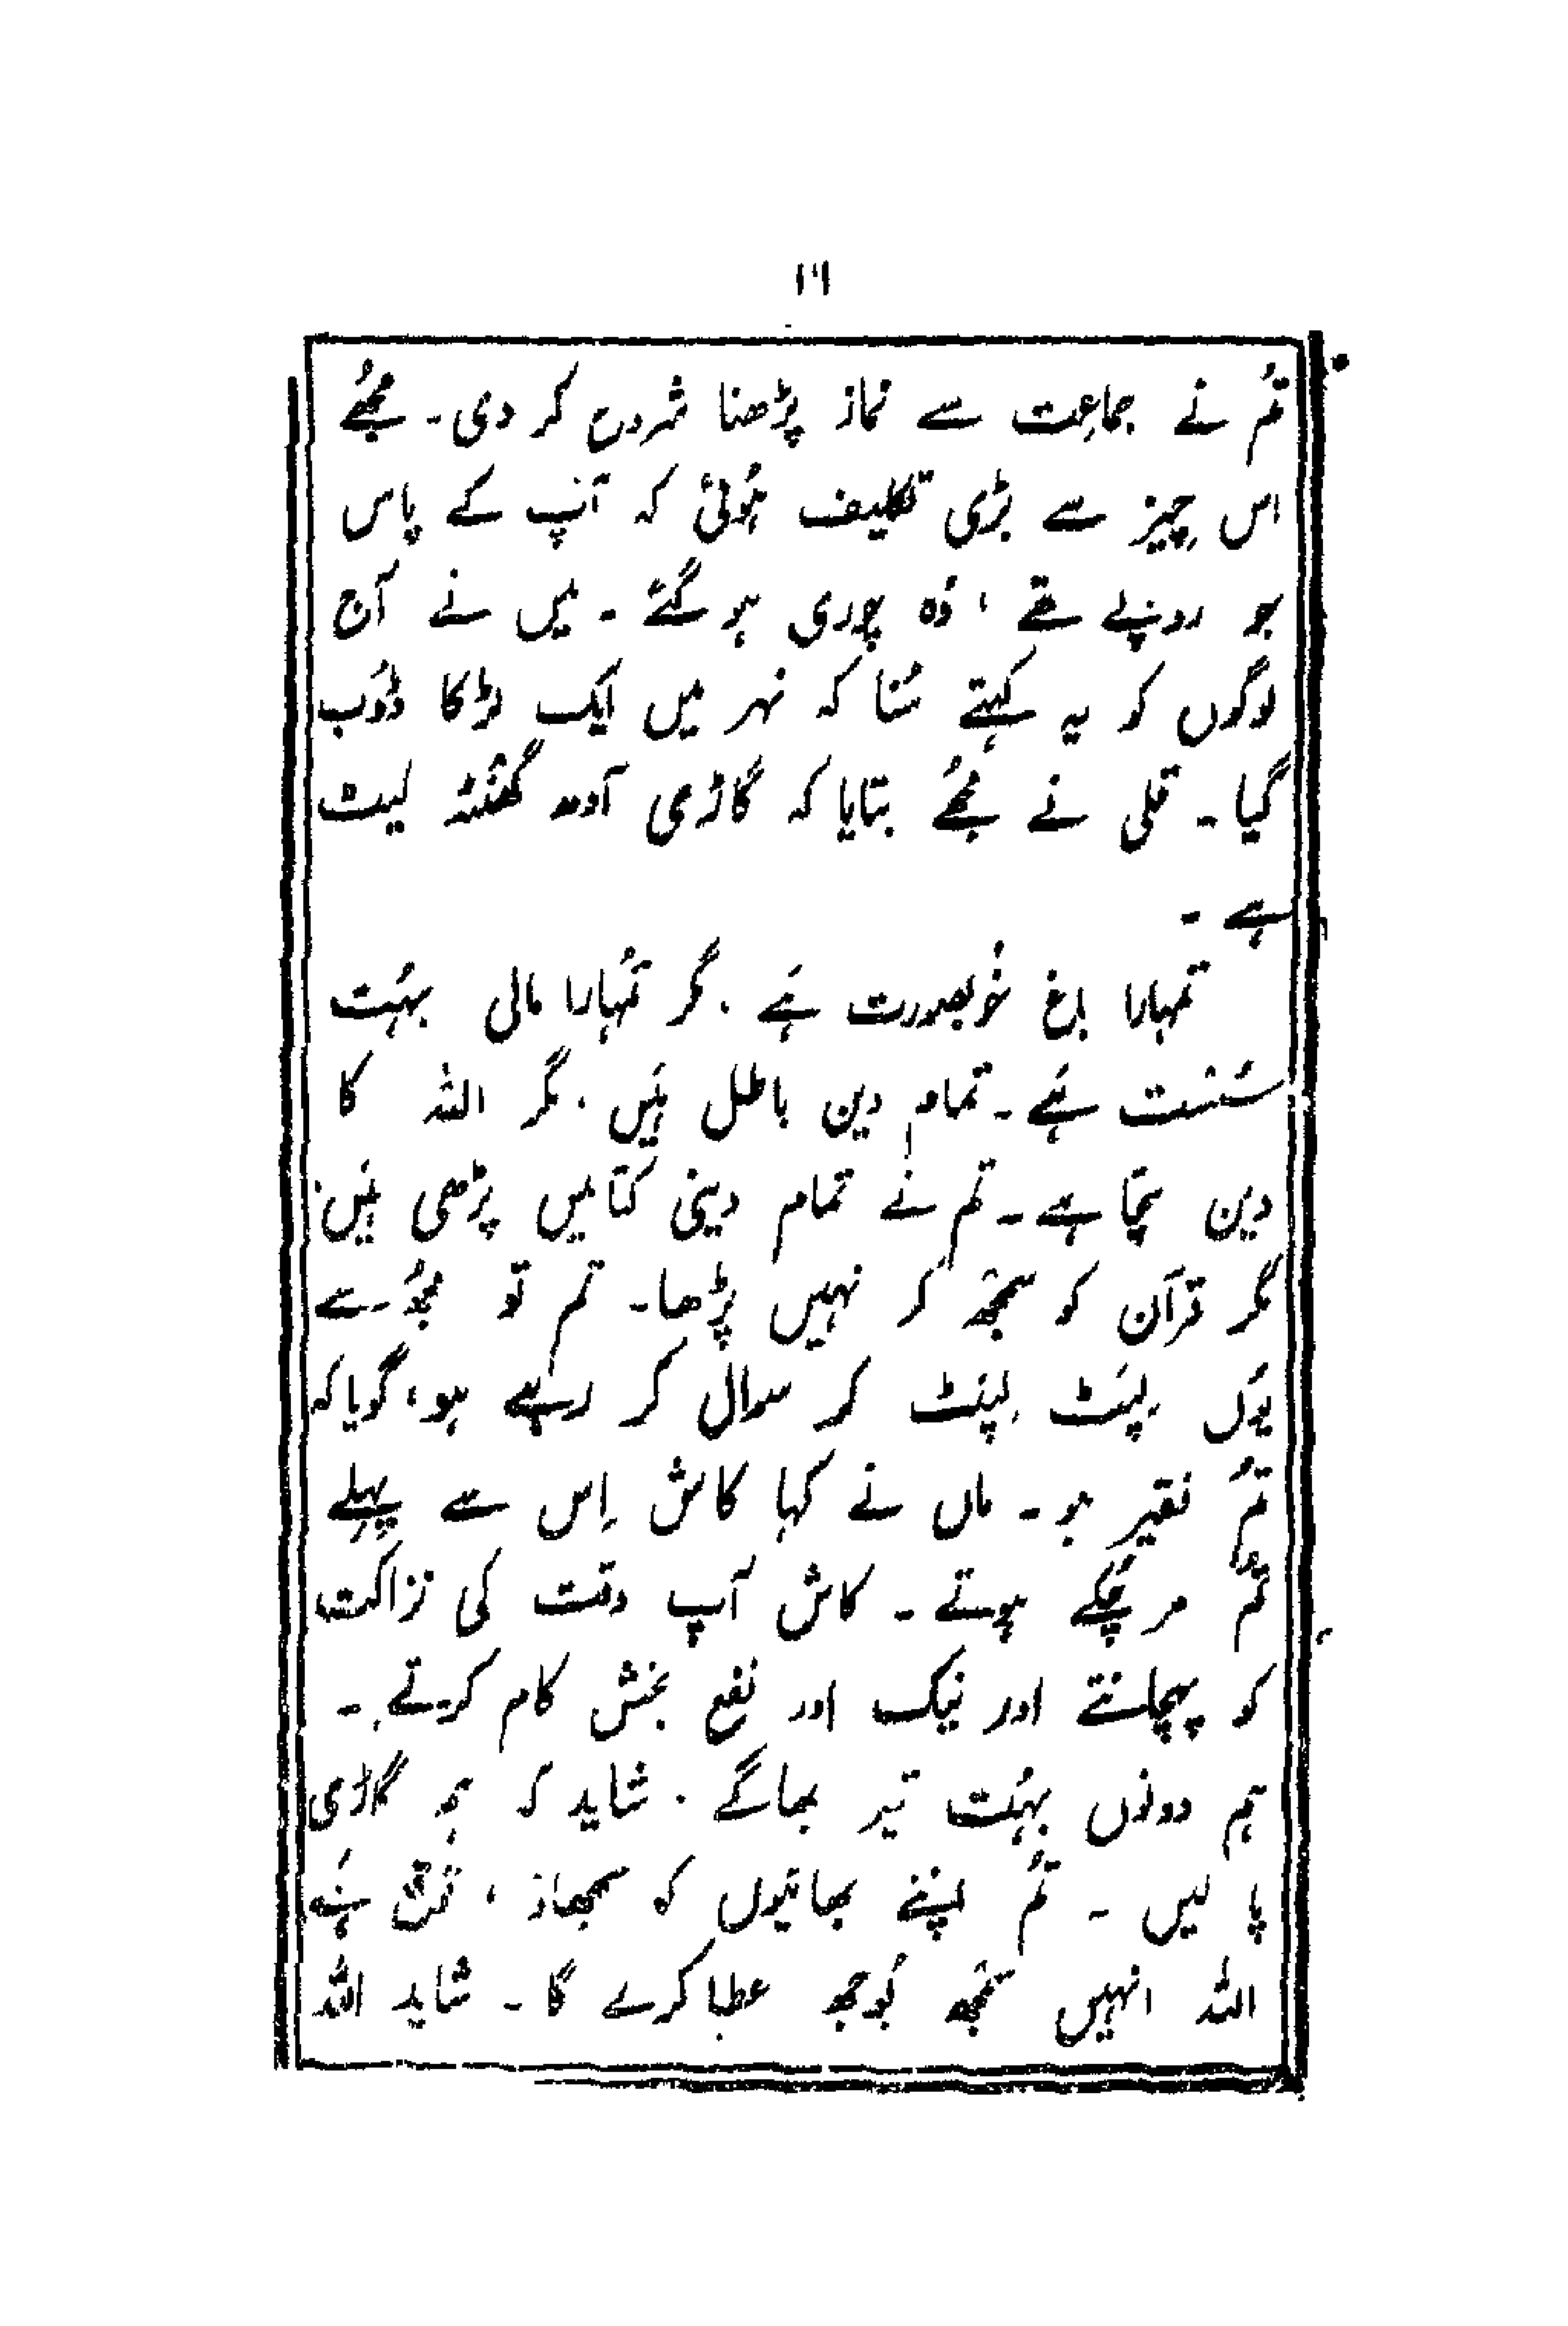 ۱۶
تُم نے جماعِت سے نماز پڑھنا شروع کر دی۔ مجھُے
اس چیز سے بڑی تکلیف ہُوئی کہ آپ کے پاس
جو روپئے تھے ، وُہ چوری ہو گئے ۔ میں نے آج
لوگوں کو یہ کہتے سُنا کہ نہر میں ایک لڑکا ڈُوب
گیا ۔ قلی نے مجھُے بتایا کہ گاڑی آدھ گھنٹہ لیٹ
ہے ۔
تمہارا باغ خُوبصورت ہَے . مگر تمُہارا مالی بہُت
سُست ہَے ۔ تمام دین باطل ہَیں . مگر اللہ کا
دین سچّا ہے ۔ تم نے تمام دینی کتابیں پڑھی ہَیں .
مگر قرآن کو سمجھ کر نہیں پڑھا۔ تم تو مجھُ سے
یوُں لِپَٹ لِپَٹ کر سوال کر رہے ہو ، گویا کہ
تُم فقیر ہو ۔ ماں نے کہا کاش اِس سے پہلے
تُم مر چُکے ہوتے ۔ کاش آپ وقت کی نزاکت
کو پہچانتے اور نیک اور نفع بخش کام کرتے ۔
ہم دونوں بہُت تیز بھاگے . شاید کہ ہم گاڑی
پا لیں ۔ تُم اپنے بھائیوں کو سمجھاؤ ، ہَے
اللہ انہیں سمجھ بُوجھ عطا کرے گا ۔ شاید اللہ